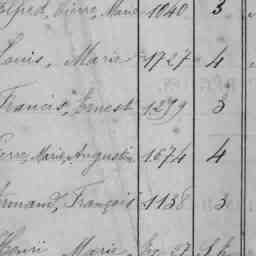 Alfred, Pierre, Marie 1040 3
Louis, Marie 1727 4
Francis, Ernest 1279 3
Pierre, Marie, Augustin 1674 4
Armand, François 1138 3
Henri Marie